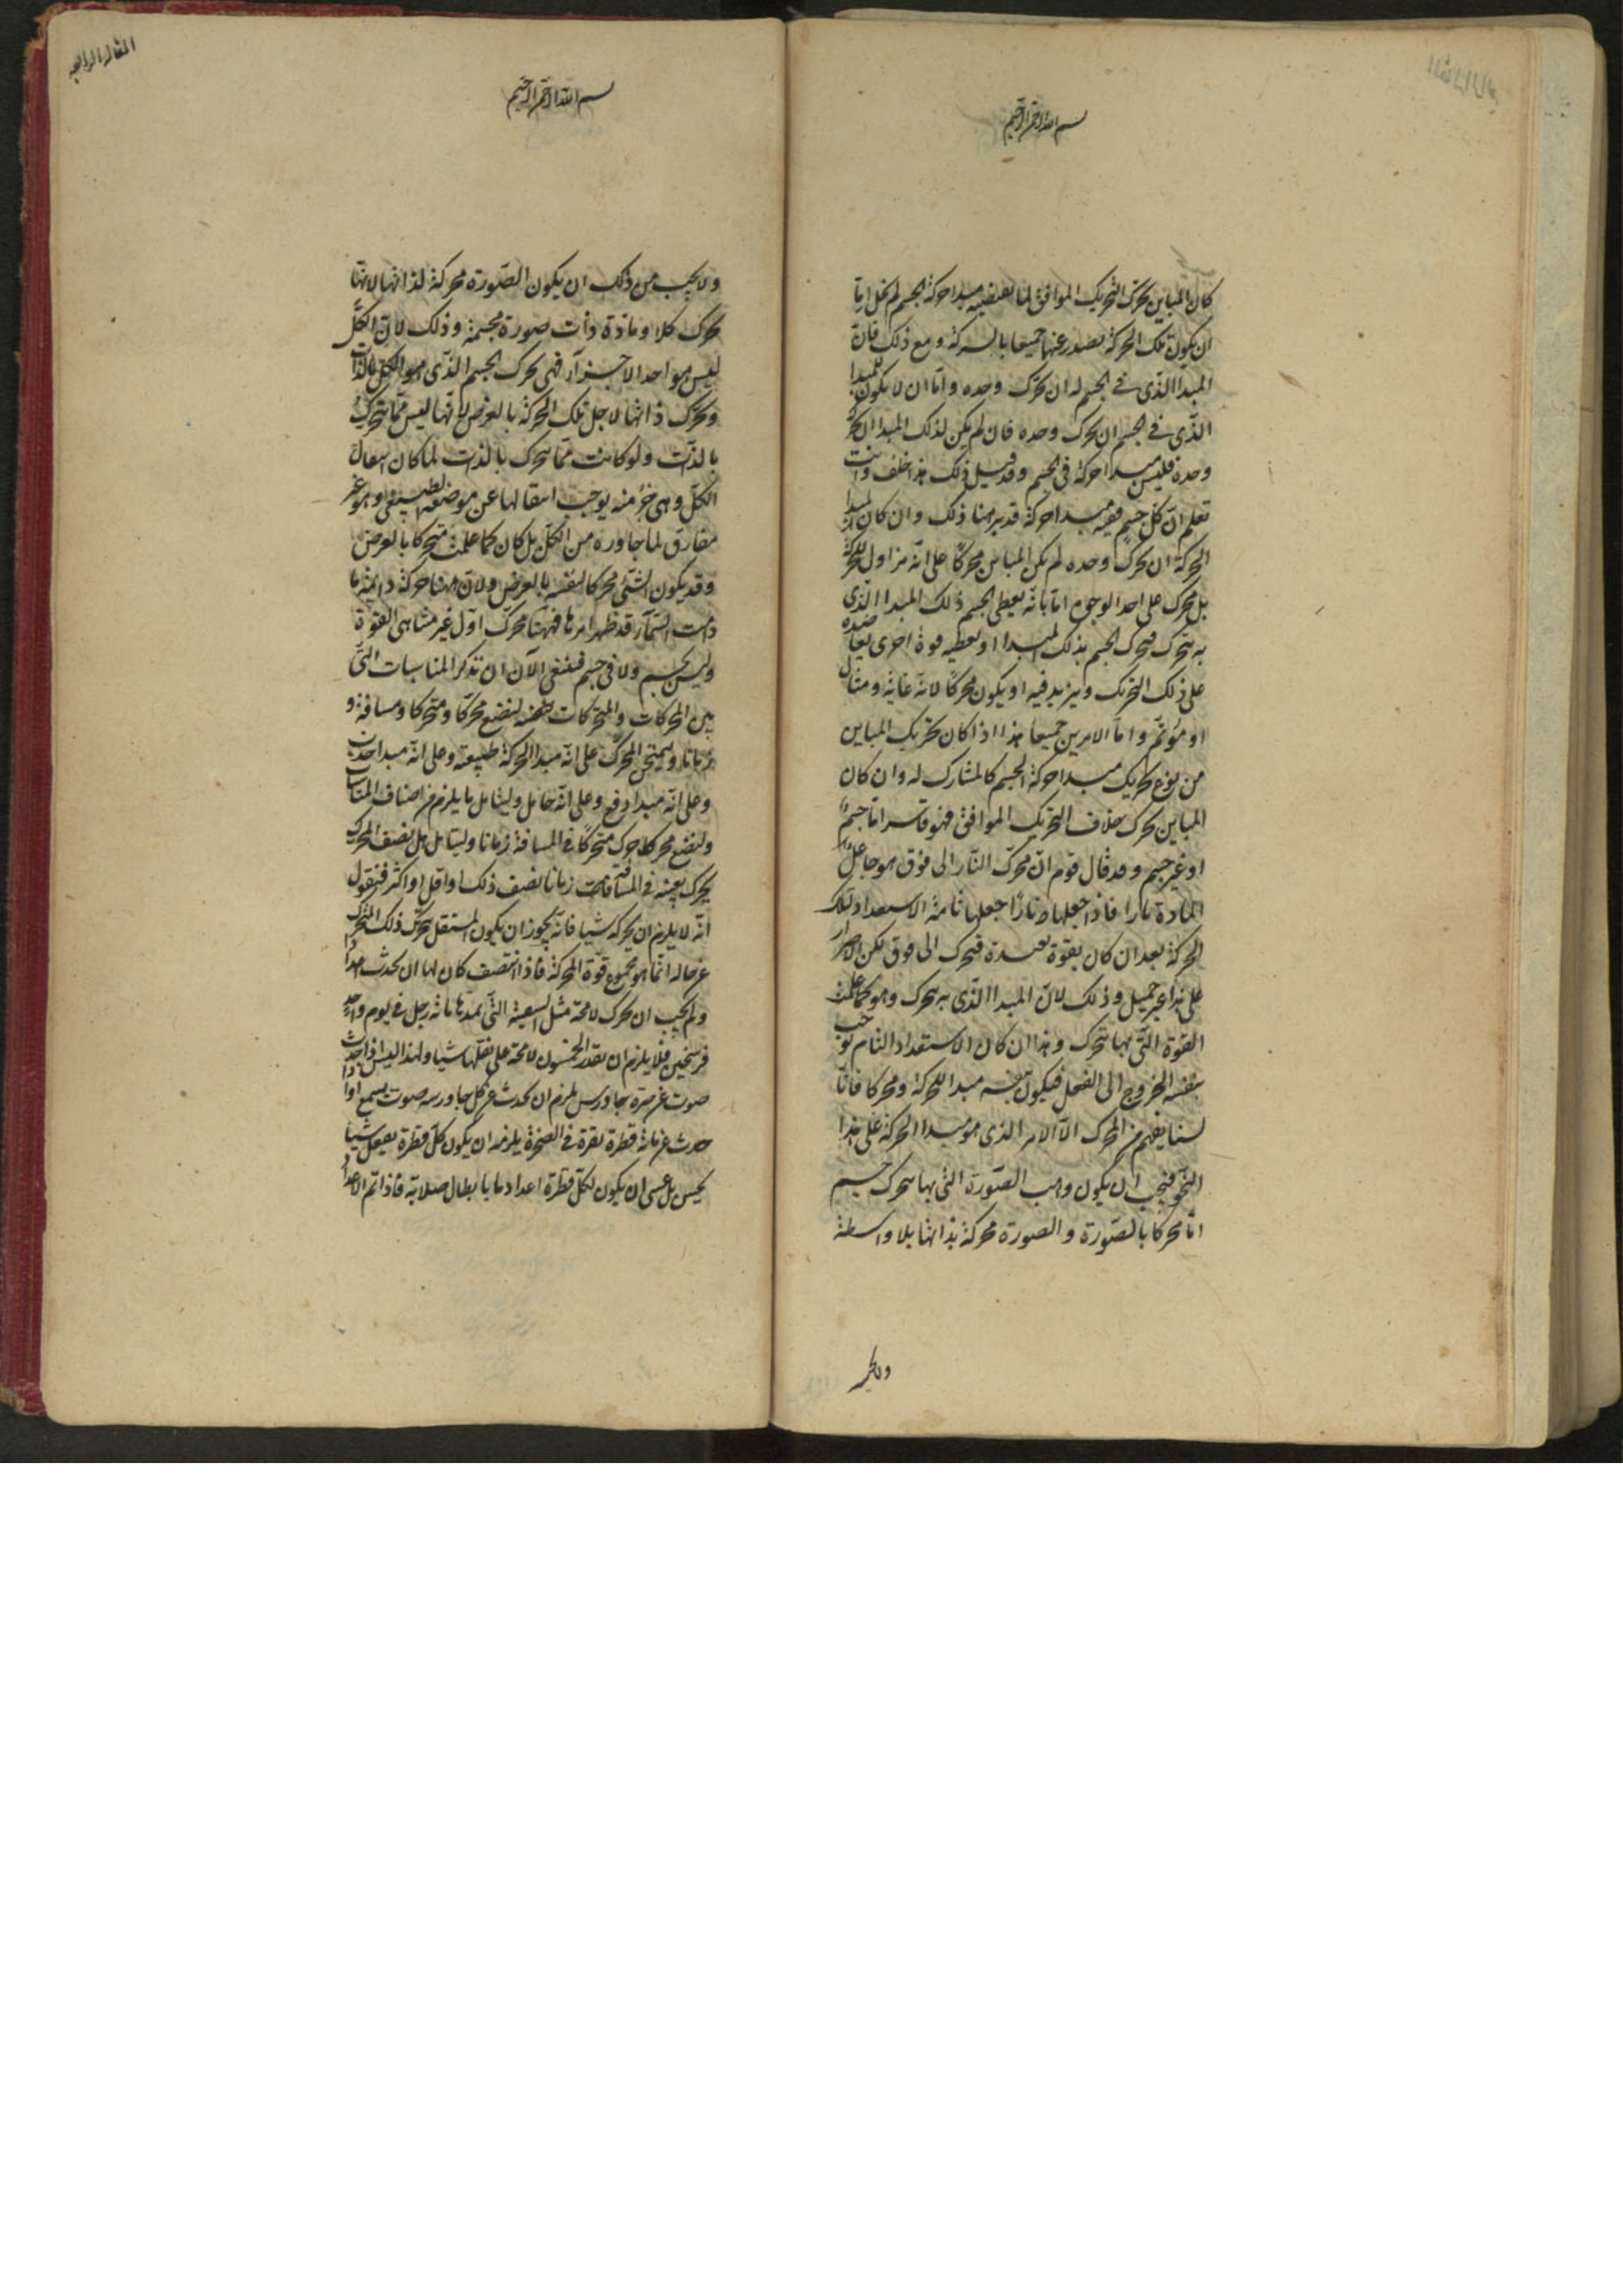 بسم الله الرحمن الرحيم
كان المباين يحرك التحريك الموافق لما يقتضيه مبدا حركة الجسم لم يخل اما
ان يكون تلك الحركة يصدر عنهما جميعا بالشركة ومع ذلك فان
المبدا الذي في الجسم له ان يحرك وحده واما ان لا يكون للمبدا
الذي في الجسم ان يحرك وحده فان لم يكن لذلك المبدا ان يحرك
وحده فليس مبدا حركة في الجسم وقد قيل ذلك هذا خلف وانت
تعلم ان كل جسم ففيه مبدا حركة قد برهنا ذلك وان كان لمبدا
الحركة ان يحرك وحده لم يكن المباين محركا على انه مزاول للحركة
بل محرك على احد الوجوه اما بانه يعطي الجسم ذلك المبدا الذي
به يتحرك فيحرك الجسم بذلك المبدا او يعطيه قوة اخرى يعاضده
على ذلك التحريك ويزيد فيه او يكون محركا لانه غاية ومثال
او مؤتم واما الامرين جميعا هذا اذا كان تحريك المباين
من نوع تحريك مبدا حركة الجسم كالمشارك له وان كان
المباين يحرك خلاف التحريك الموافق فهو قاسر اما جسم
او غير جسم وقد قال قوم ان محرك النار الى فوق هو جاعل
المادة نارا فاذا جعلها نارا جعلها تامة الاستعداد لتلك
الحركة بعد ان كان بقوة بعيدة فيتحرك الى فوق لكن الاصرار
على هذا غير جميل وذلك لان المبدا الذي به يتحرك وهو كما علمت
القوة التي بها تتحرك وهذا ان كان الاستعداد التام يوجب
بنفسه الخروج الى الفعل فيكون بنفسه مبدا للحركة ومحركا فانا
لسنا نفهم من المحرك الا الامر الذي هو مبدا الحركة على هذا
النحو فيجب ان يكون واهب الصورة التي بها يتحرك جسم
اما محركا بالصورة والصورة محركة بذاتها بلا واسطة
ولا يجب
المقالة الرابعة
بسم الله الرحمن الرحيم
ولا يجب من ذلك ان يكون الصورة محركة لذاتها لانها
تحرك كلا ومادة ذات صورة مجسمة وذلك لان الكل
ليس هو احد الاجزاء فهي تحرك الجسم الذي هو الكل بالذات
وتحرك ذاتها لاجل تلك الحركة بالعرض لانها ليس مما يتحرك
بالذات ولو كانت مما يتحرك بالذات لما كان انتقال
الكل وهي جزء منه يوجب انتقالها عن موضعها الطبيعي وهو غير
مفارق لما جاوره من الكل بل كان كما علمت متحركا بالعرض
وقد يكون الشئ محركا لنفسه بالعرض ولان ههنا حركة دايمة ما
دامت السماء قد ظهر امرها فههنا محرك اول غير متناهي القوة
وليس بجسم ولا في جسم فينبغي الآن ان نذكر المناسبات التي
بين المحركات والمتحركات فلنضع محركا ومتحركا ومسافة و
زمانا وليمتحن المحرك على انه مبدا الحركة طبيعته وعلى انه مبدا جذب
وعلى انه مبدا دفع وعلى انه حامل وليتامل ما يلزم من اصناف المناسبات
ولنضع محركا حرك متحركا في المسافة زمانا وليتامل هل نصف المحرك
يحرك بعينه في المسافة زمانا نصف ذلك او اقل او اكثر فنقول
انه لا يلزم ان يحركه شيا فانه يجوز ان يكون المستقل بتحريك ذلك المتحرك
عن حاله انما هو مجموع قوة المحركة فاذا انتصف كان لها ان تحدث اعدادا
ولم يجب ان تحرك لا محة مثل السفينة التي يمدها مائة رجل في يوم واحد
فرسخين فلا يلزم ان يقدر الخمسون لا محة على نقلها شيا ولهذا ليس اذا حدث
صوت عن صرة جاورس يلزم ان يحدث عن كل جاورسه صوت يسمع او اذا
حدث عن مائة قطرة نقرة في الصخرة يلزم ان يكون كل قطرة يفعل شيا
يحس بل عسى ان يكون لكل قطرة اعداد ما بابطال صلابة فاذا تم الاعداد